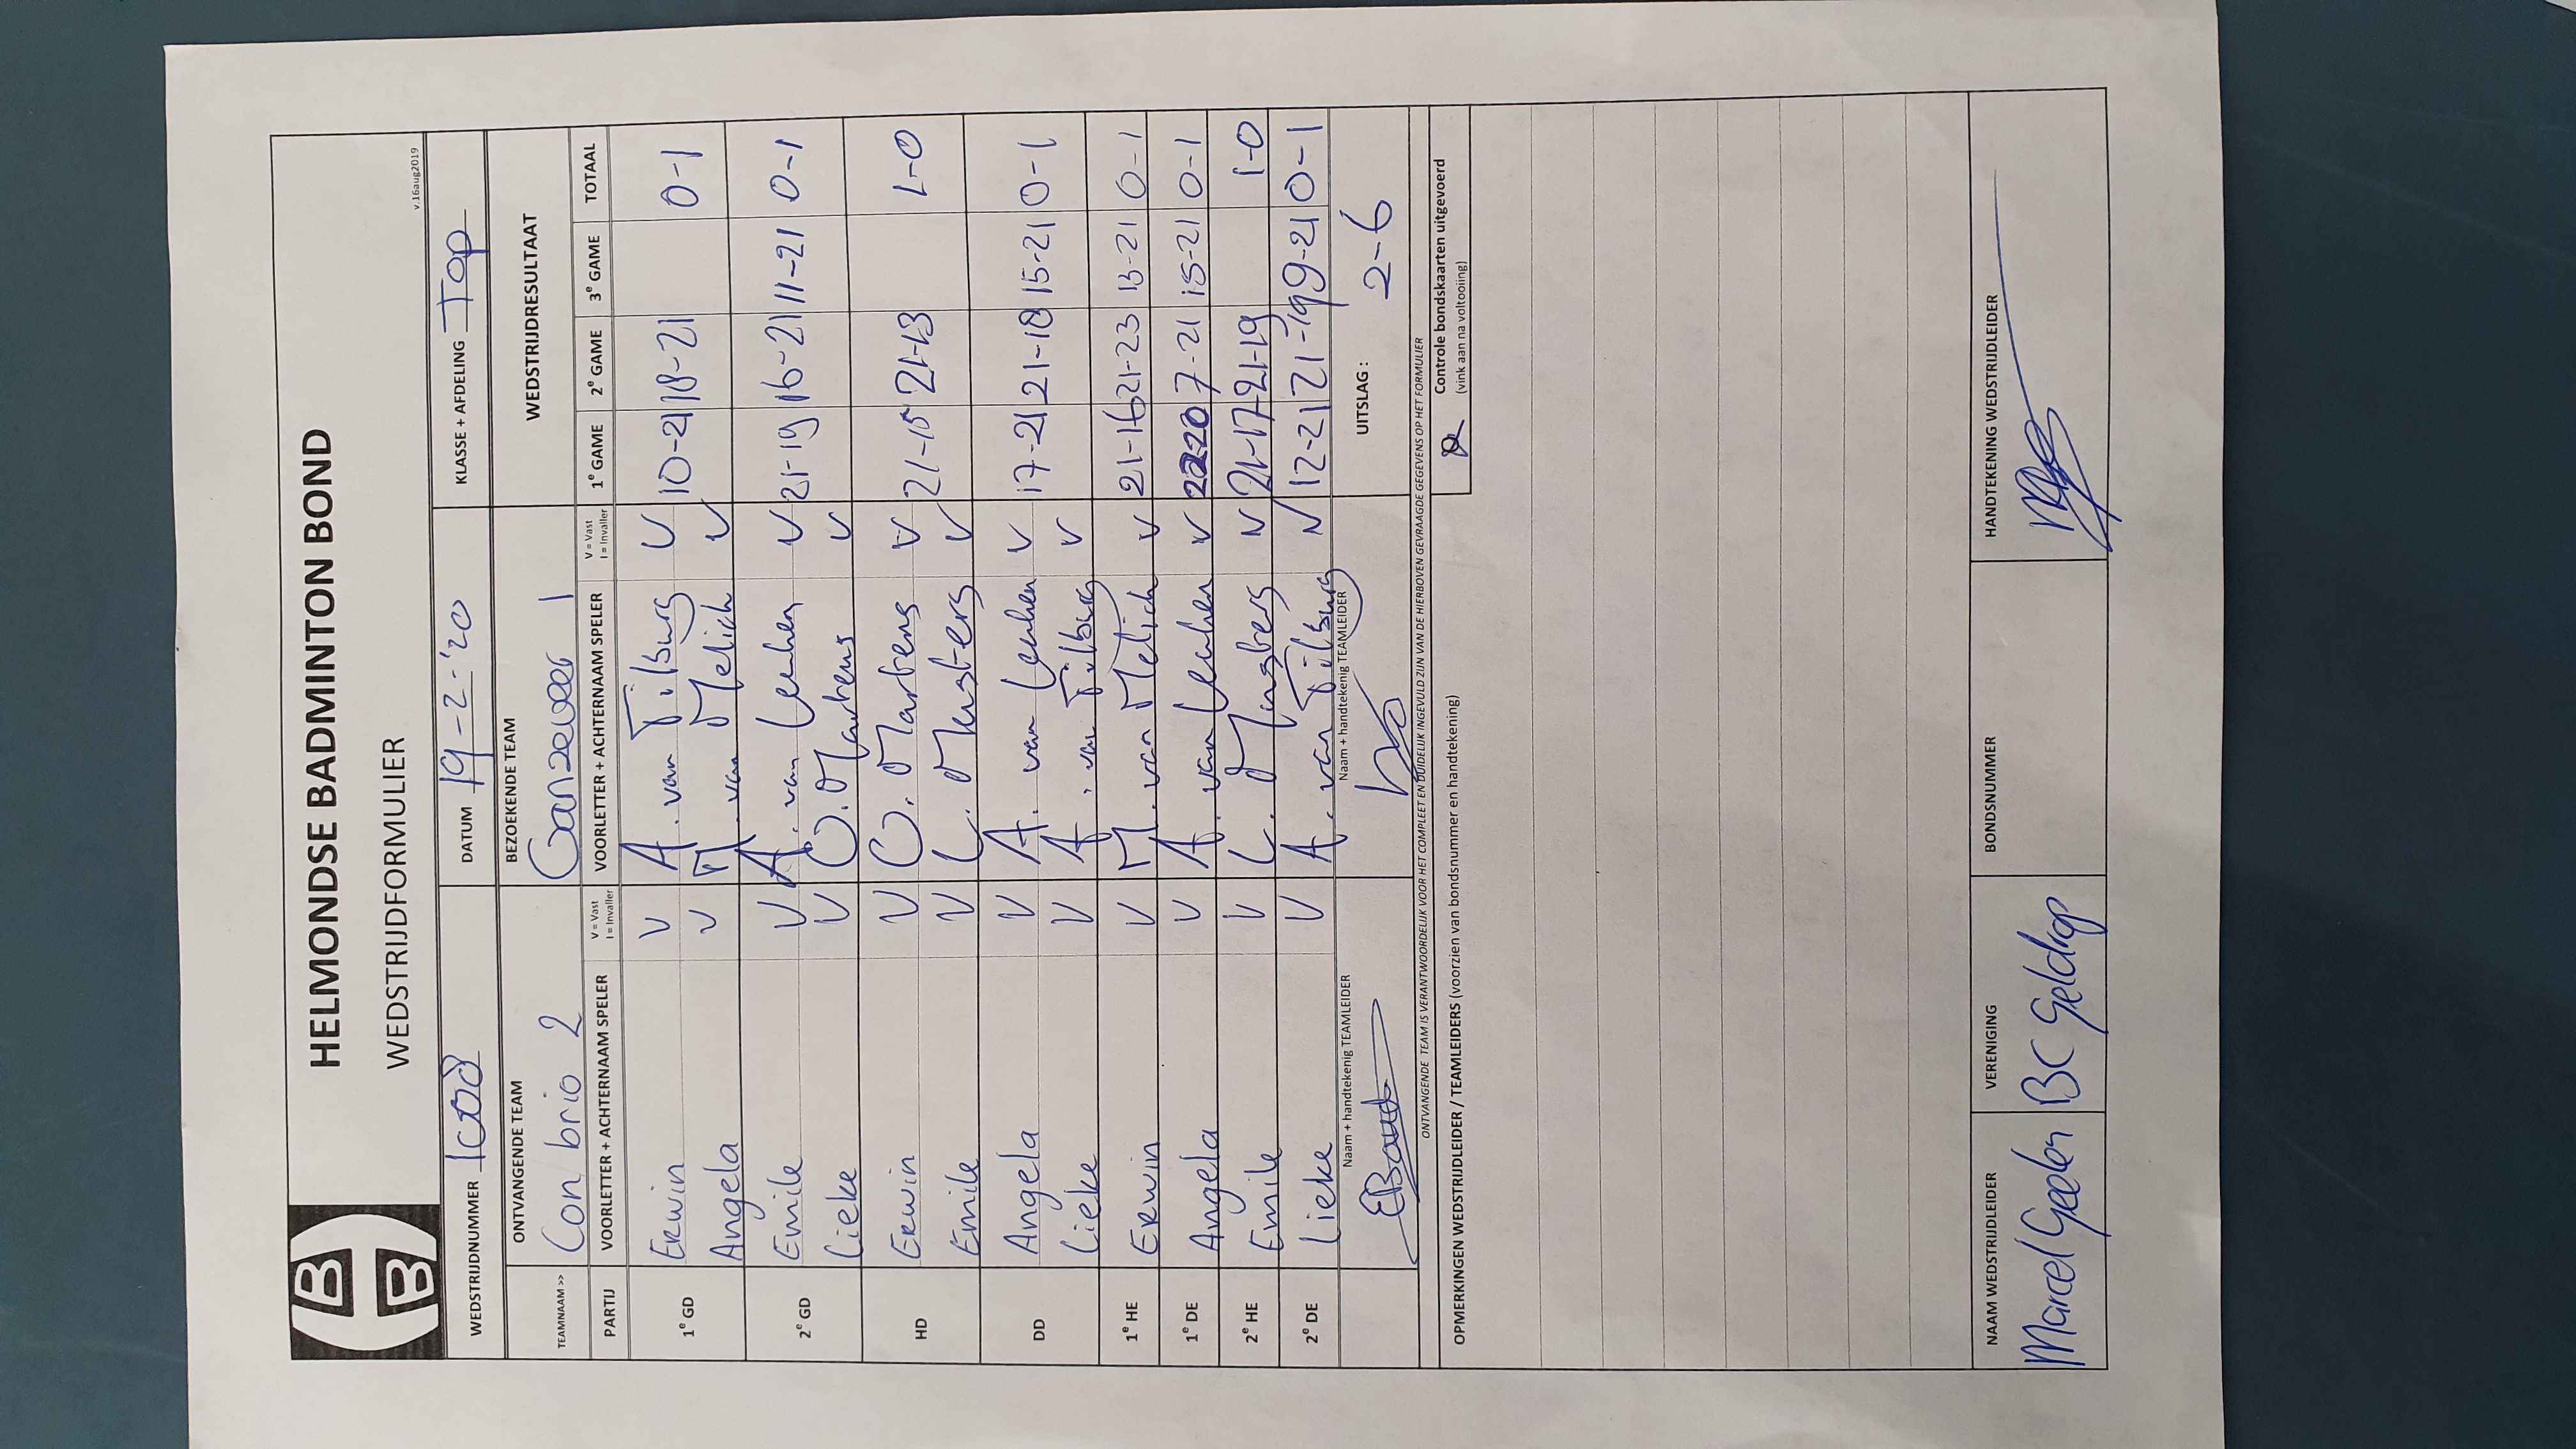 HELMONDSE BADMINTON BOND
WEDSTRIJDFORMULIER
v.16aug2019
WEDSTRIJDNUMMER 1008 DATUM 19-2-'20 KLASSE + AFDELING Top
TEAMNAAM >> ONTVANGENDE TEAM BEZOEKENDE TEAM WEDSTRIJDRESULTAAT
Con brio 2 Ganzeveer 1
PARTIJ VOORLETTER + ACHTERNAAM SPELER V = Vast I = Invaller VOORLETTER + ACHTERNAAM SPELER V = Vast I = Invaller 1e GAME 2e GAME 3e GAME TOTAAL
1e GD Erwin V A. van Tilburg V 10-21 18-21 0-1
Angela V M. van Melick V
2e GD Emile V A. van Leuken V 21-19 16-21 11-21 0-1
Lieke V O. Martens V
HD Erwin V O. Martens V 21-15 21-13 1-0
Emile V L. Minsberg V
DD Angela V A. van Leuken V 17-21 21-18 15-21 0-1
Lieke V A. van Tilburg V
1e HE Erwin V M. van Melick V 21-16 21-23 13-21 0-1
1e DE Angela V A. van Leuken V 22-20 7-21 15-21 0-1
2e HE Emile V L. Minsberg V 21-17 21-19 1-0
2e DE Lieke V A. van Tilburg V 12-21 21-19 9-21 0-1
Naam + handtekenig TEAMLEIDER Naam + handtekenig TEAMLEIDER UITSLAG : 2-6
ONTVANGENDE TEAM IS VERANTWOORDELIJK VOOR HET COMPLEET EN DUIDELIJK INGEVULD ZIJN VAN DE HIERBOVEN GEVRAAGDE GEGEVENS OP HET FORMULIER
OPMERKINGEN WEDSTRIJDLEIDER / TEAMLEIDERS (voorzien van bondsnummer en handtekening)
Controle bondskaarten uitgevoerd
(vink aan na voltooiing)
NAAM WEDSTRIJDLEIDER VERENIGING BONDSNUMMER HANDTEKENING WEDSTRIJDLEIDER
Marcel Geelen BC Geldrop